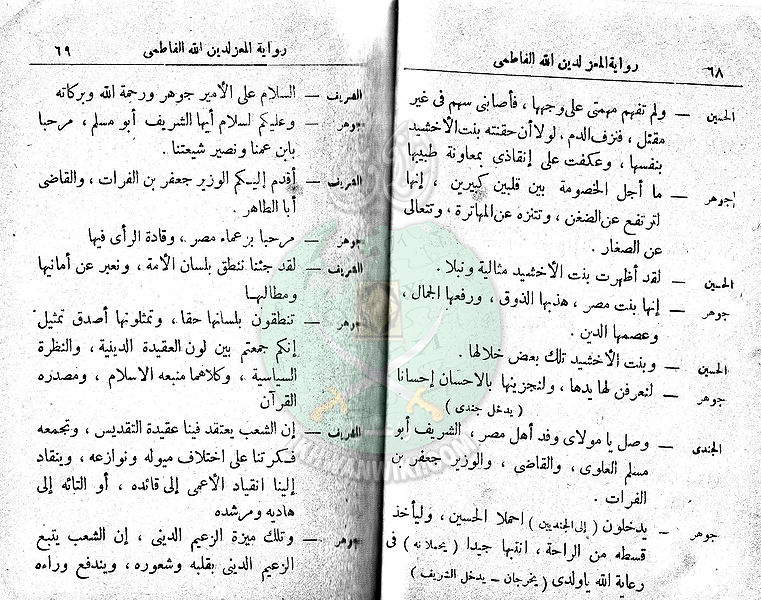 ٦٨
رواية المعز لدين الله الفاطمى
الحسين — ولم تفهم مهمتى على وجهها ، فأصابنى سهم فى غير
مقتل ، فنزف الدم ، لولا أن حقنته بنت الأخشيد
بنفسها ، وعكفت على إنقاذى بمعاونة طبيبها
جوهر — ما أجل الخصومة بين قلبين كبيرين ، إنها
لترتفع عن الضغن ، وتتنزه عن المهاترة ، وتتعالى
عن الصغار .
الحسين — لقد أظهرت بنت الأخشيد مثالية ونبلا .
جوهر — إنها بنت مصر ، هذبها الذوق ، ورفعها الجمال ،
وعصمها الدين .
الحسين — وبنت الأخشيد تلك بعض خلالها .
جوهر — لنعرفن لها يدها ، ولنجزينها بالاحسان إحسانا
( يدخل جندى )
الجندى — وصل يا مولاى وفد أهل مصر ، الشريف أبو
مسلم العلوى ، والقاضى ، والوزير جعفر بن
الفرات .
جوهر — يدخلون ( إلى الجنديين ) احملا الحسين ، وليأخذ
قسطه من الراحة ، انتبها جيدا ( يحملانه ) فى
رعاية الله ياولدى ( يخرجان – يدخل الشريف )
رواية المعز لدين الله الفاطمى
٦٩
الشريف — السلام على الأمير جوهر ورحمة الله وبركاته
جوهر — وعليكم لسلام أيها الشريف أبو مسلم ، مرحبا
بابن عمنا ونصير شيعتنا .
الشريف — أقدم إليكم الوزير جعفر بن الفرات ، والقاضى
أبا الطاهر .
جوهر — مرحبا بزعماء مصر ، وقادة الرأى فيها
الشريف — لقد جئنا ننطق بلسان الأمة ، ونعبر عن أمانيها
ومطالبها
جوهر — تنطقون بلسانها حقا ، وتمثلونها أصدق تمثيل
إنكم جمعتم بين لون العقيدة الدينية ، والنظرة
السياسية ، وكلاهما منبعه الاسلام ، ومصدره
القرآن
الشريف — إن الشعب يعتقد فينا عقيدة التقديس ، وتجمعه
فكرتنا على اختلاف ميوله ونوازعه ، وينقاد
إلينا انقياد الأعمى إلى قائده ، أو التائه إلى
هاديه ومرشده
جوهر — وتلك ميزة الزعيم الدينى ، إن الشعب يتبع
الزعيم الدينى بقلبه وشعوره ، ويندفع وراءه
IKHWANWIKI.COM